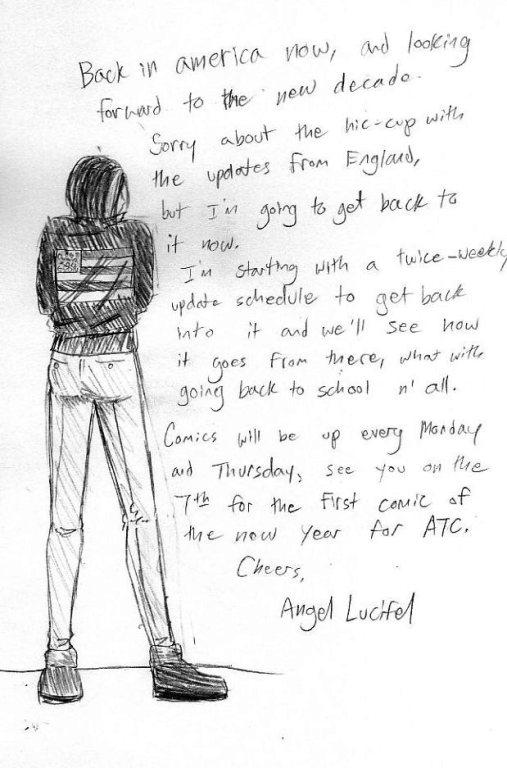 Back in america now, and looking
forward to the new decade.
Sorry about the hic-cup with
the updates from England,
but I'm going to get back to
it now.
I'm starting with a twice-weekly
update schedule to get back
into it and we'll see how
it goes from there, what with
going back to school n' all.
Comics will be up every Monday
and Thursday, see you on the
7th for the first comic of
the new year for ATC.
Cheers,
Angel Lucifel